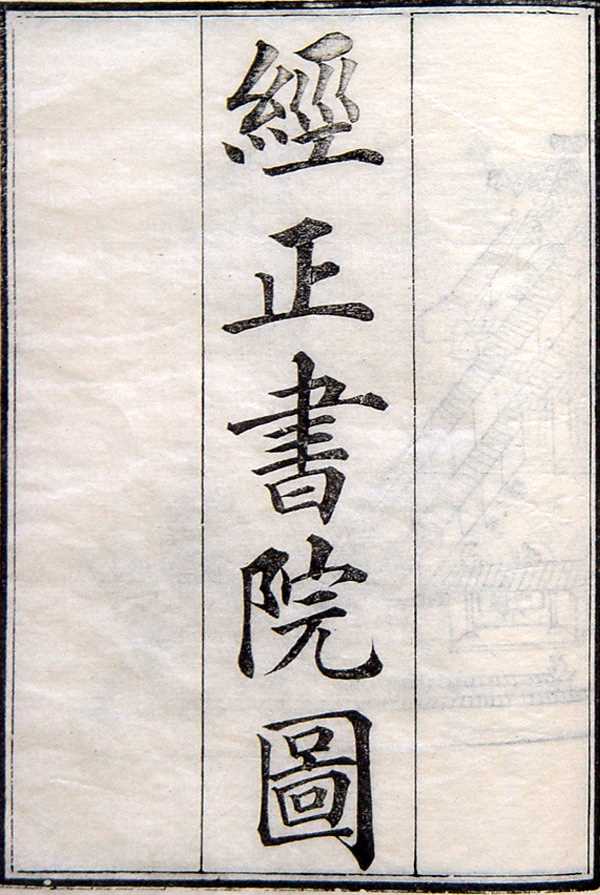 經正書院圖